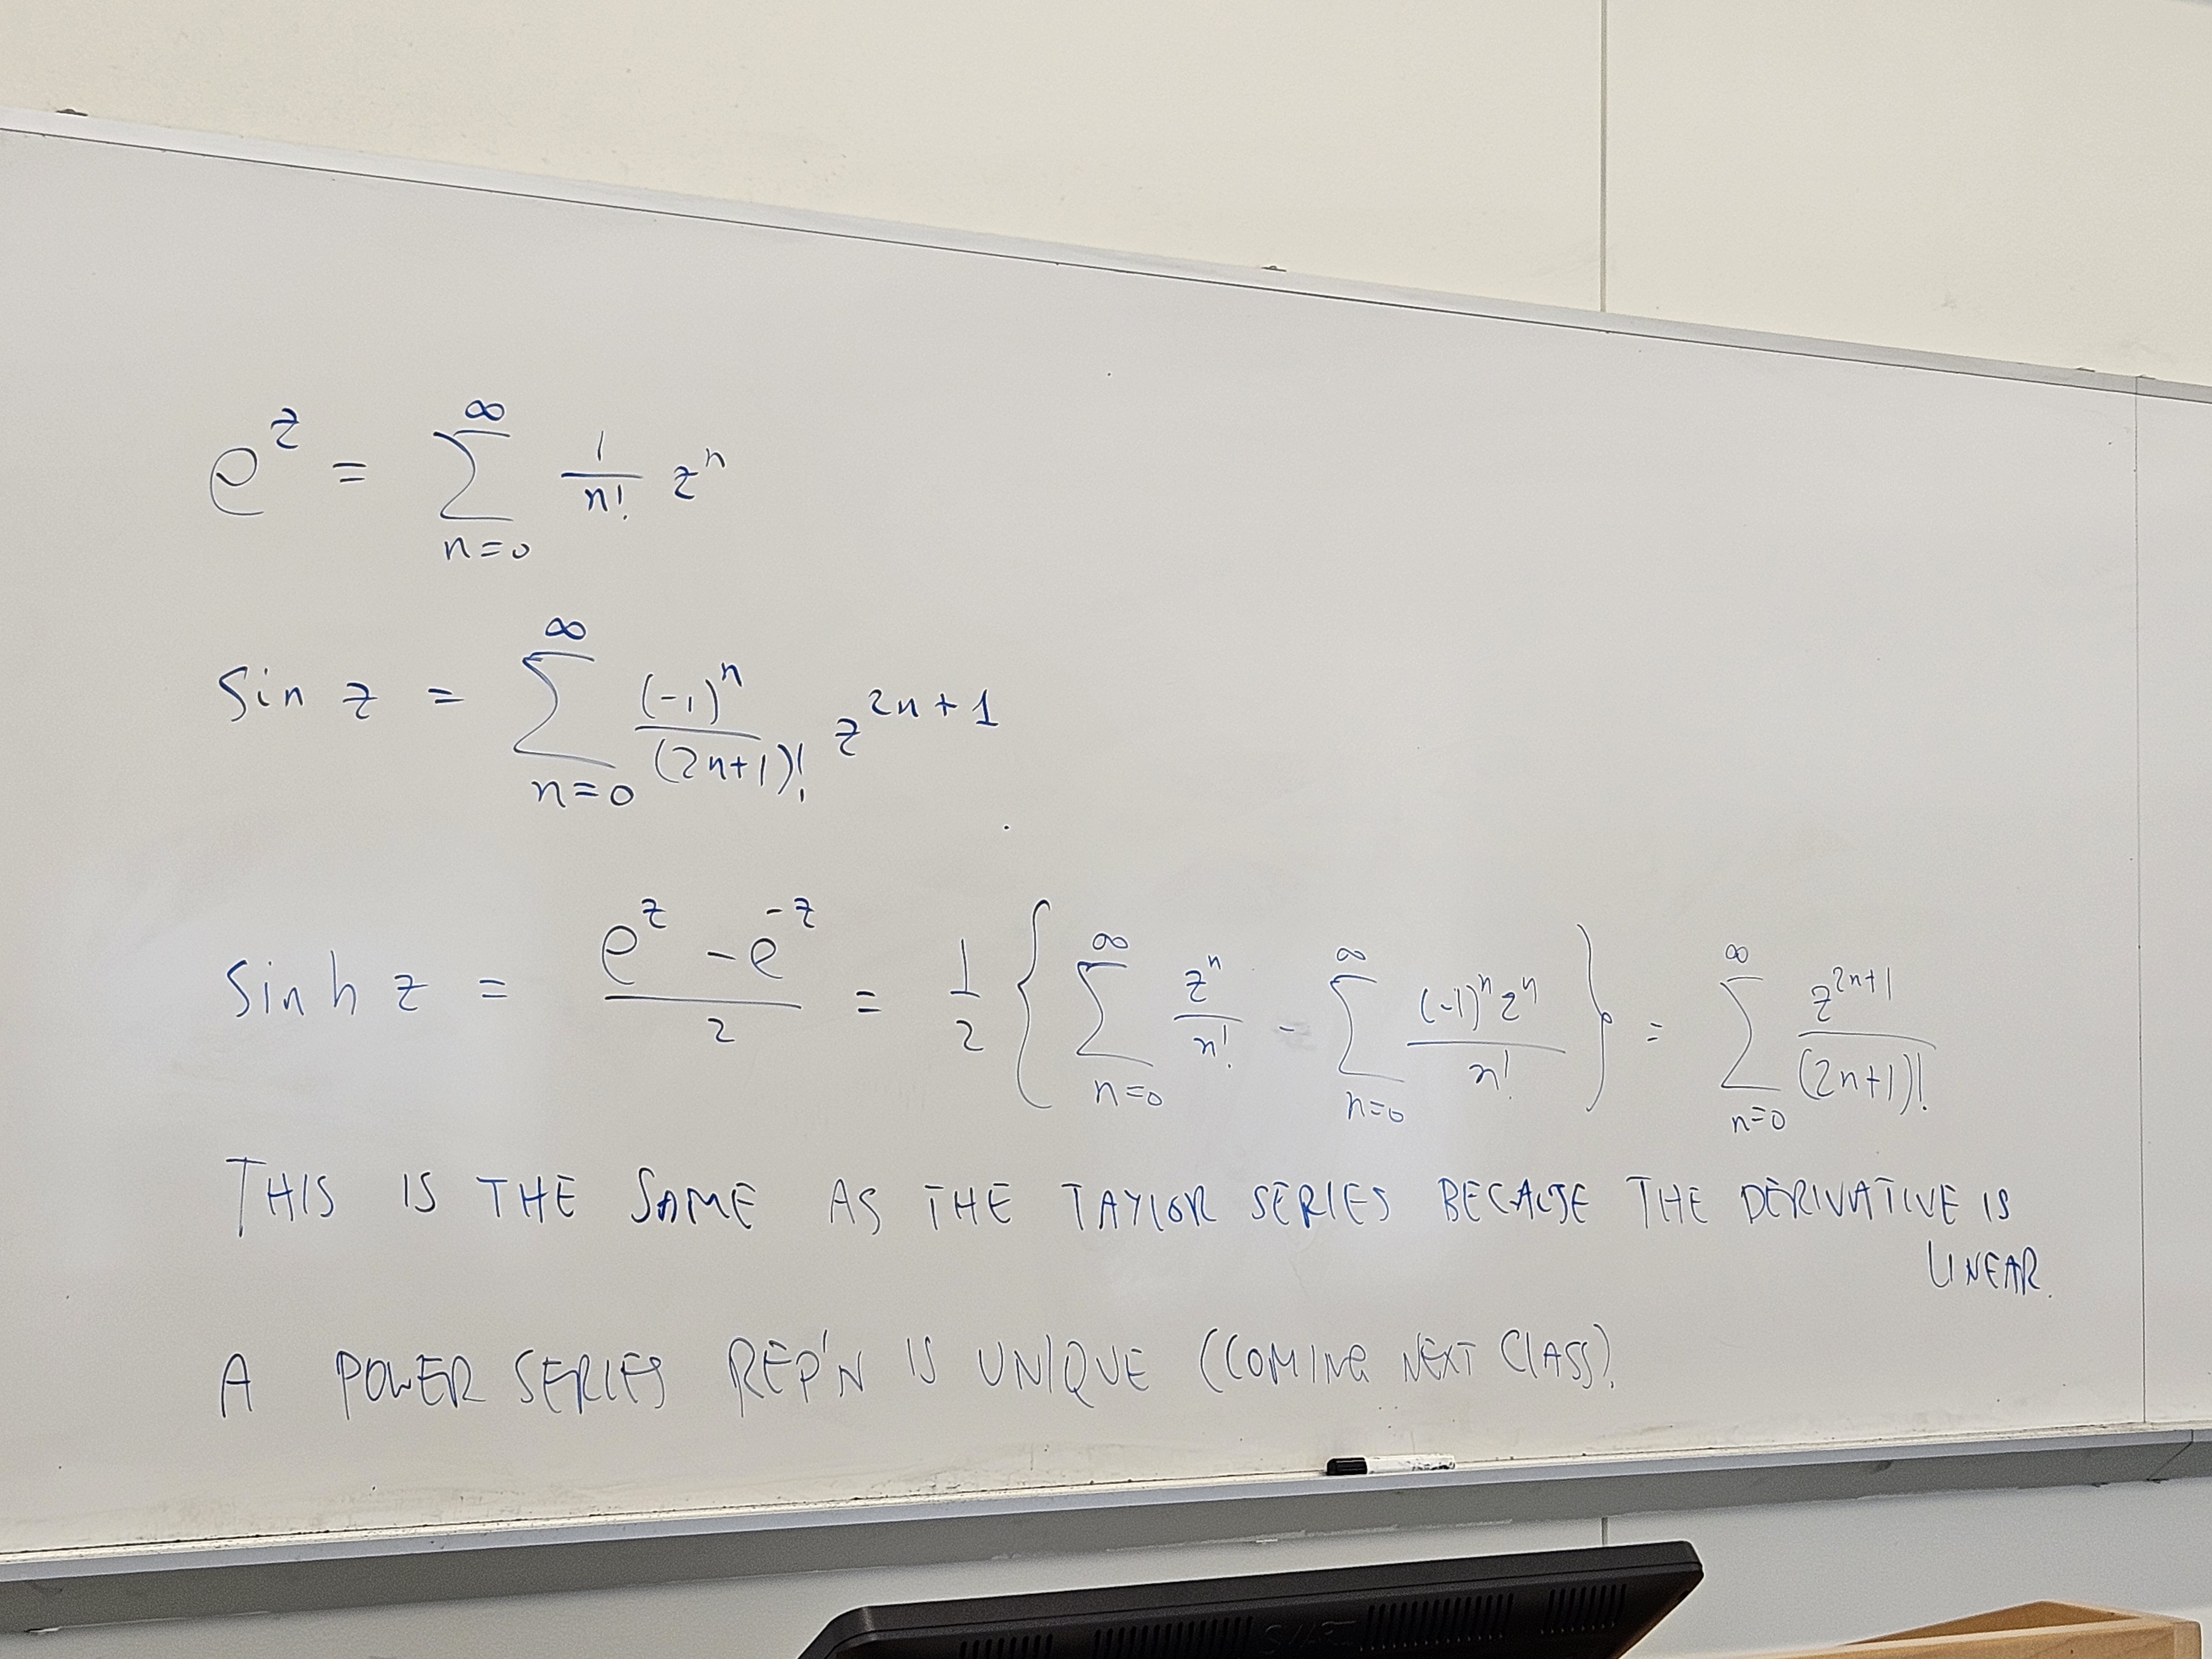 e^z = ∑_{n=0}^{∞} 1/n! z^n
Sin z = ∑_{n=0}^{∞} (-1)^n/(2n+1)! z^{2n+1}
Sinh z = (e^z - e^{-z})/2 = 1/2 { ∑_{n=0}^{∞} z^n/n! - ∑_{n=0}^{∞} (-1)^n z^n/n! } = ∑_{n=0}^{∞} z^{2n+1}/(2n+1)!
THIS IS THE SAME AS THE TAYLOR SERIES BECAUSE THE DERIVATIVE IS
LINEAR.
A POWER SERIES REP'N IS UNIQUE (COMING NEXT CLASS).